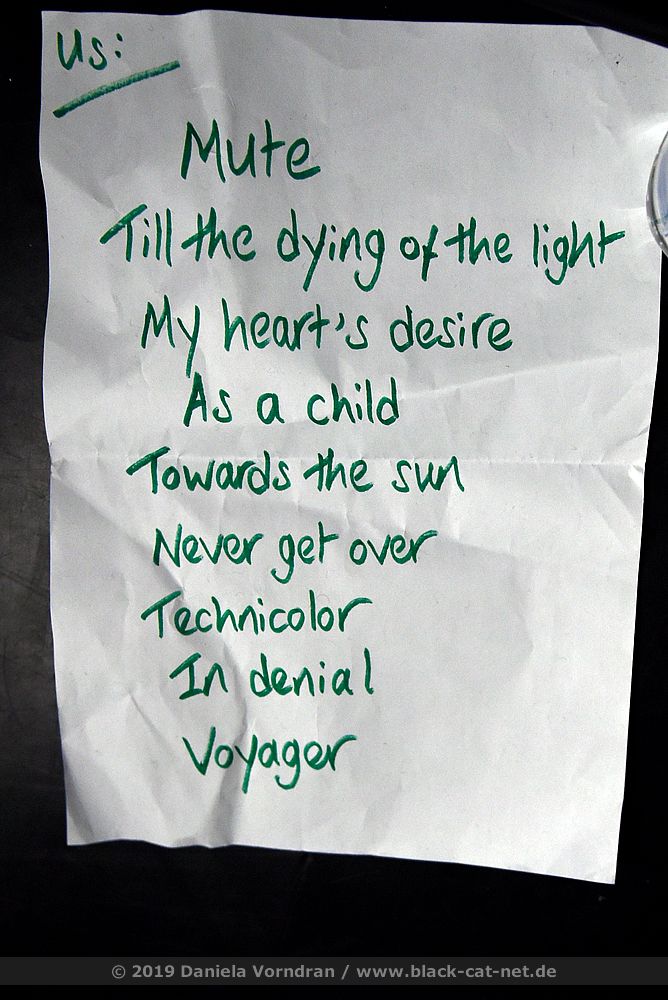 Us:
Mute
Till the dying of the light
My heart's desire
As a child
Towards the sun
Never get over
Technicolor
In denial
Voyager
© 2019 Daniela Vorndran / www.black-cat-net.de